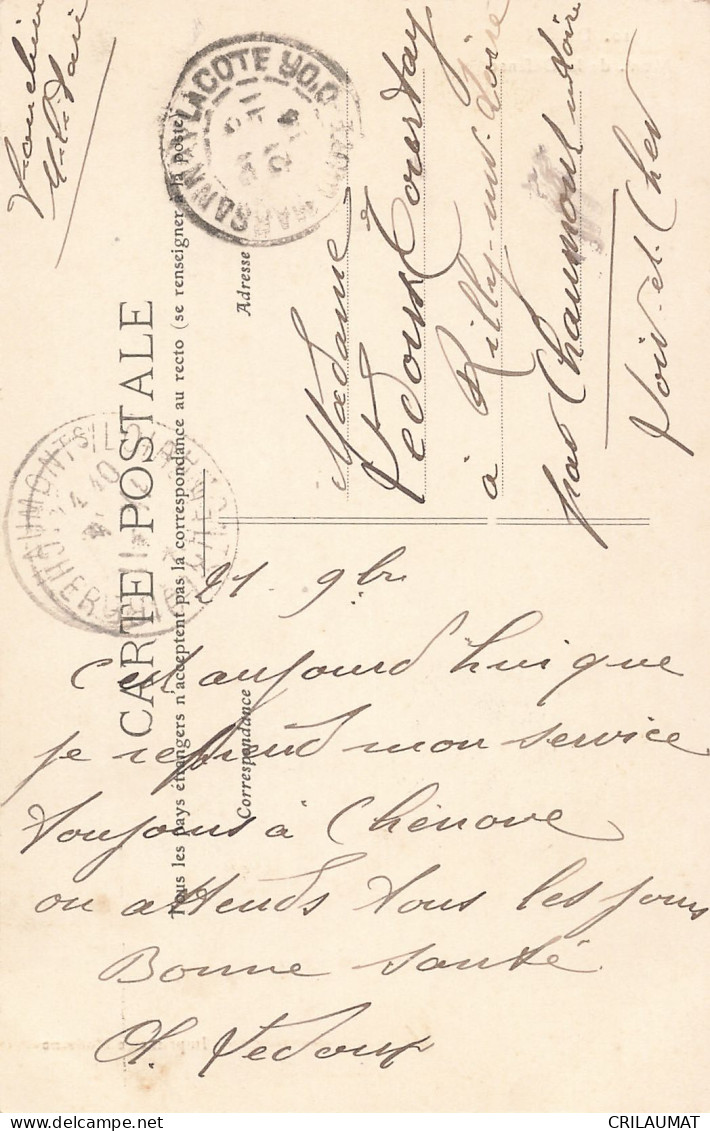 Franchise
Militaire
CARTE POSTALE
Tous les pays étrangers n'acceptent pas la correspondance au recto (se renseigner à la poste)
Correspondance
Adresse
MARSANNAY LA COTE
Madame
Vedoux Tourtay
à Rilly-sur-Loire
par Chaumont s/Loire
Loir-et-Cher
21 9bre
C'est aujourd'hui que
je reprend mon service
toujours à Chenove
on attends tous les jours
Bonne santé
A. Vedoux
CRILAUMAT